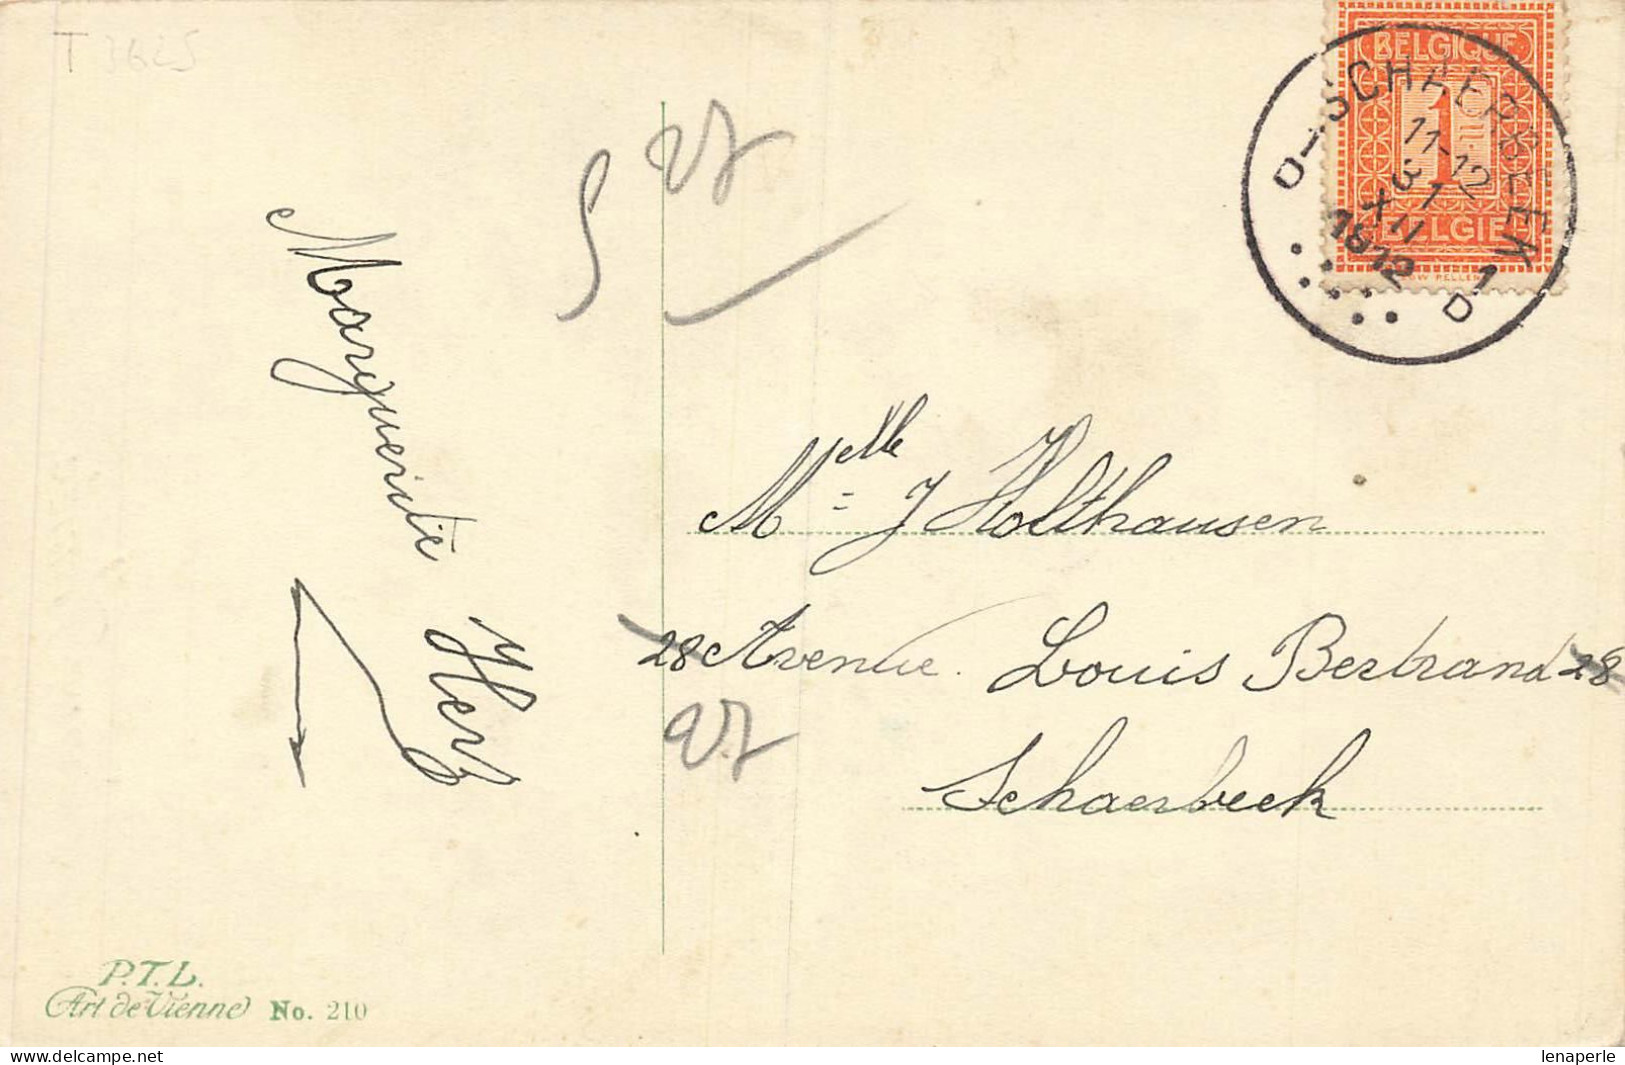 T 3625
BELGIQUE
1
BELGIË
SCHAERBEEK
11-12
31
XII
1912
1D
1D
27
Marguerite Herz
Melle J Holthausen
28 Avenue Louis Bertrand 28
27
Schaerbeek
P.T.L.
Art de Vienne No. 210
https://www.delcampe.net
lenaperle